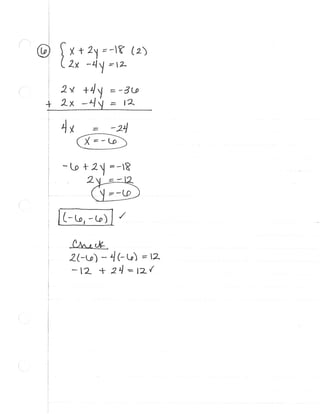 6 { x + 2y = -18 (2)
2x - 4y = 12
2x + 4y = -36
+ 2x - 4y = 12
4x = -24
x = -6
-6 + 2y = -18
2y = -12
y = -6
(-6, -6) ✓
Check
2(-6) - 4(-6) = 12
-12 + 24 = 12 ✓